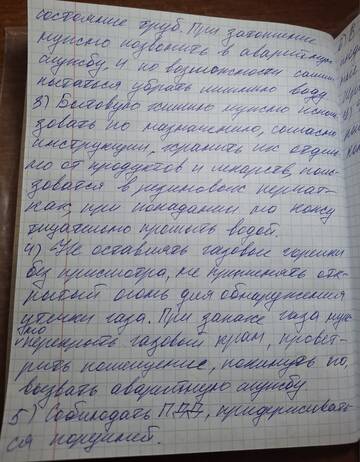 состояние труб. При затопление
нужно позвонить в аварийную
службу, и по возможности самим
пытаться убрать лишнюю воду
3) Бытовую химию нужно исполь
зовать по назначению, согласно
инструкции, хранить их отдель
но от продуктов и лекарств, поль-
зоватся в резиновых перчат-
ках, при попадании на кожу
тщательно промыть водой.
4) Не оставлять газовые горелки
без присмотра, не применять отк-
рытый огонь для обнаружения
утечки газа. При запахе газа нуж-
но перекрыть газовый кран, провет-
рить помещение, покинуть по,
вызвать аварийную службу
5) Соблюдать ПДД, придерживать-
ся порциней.